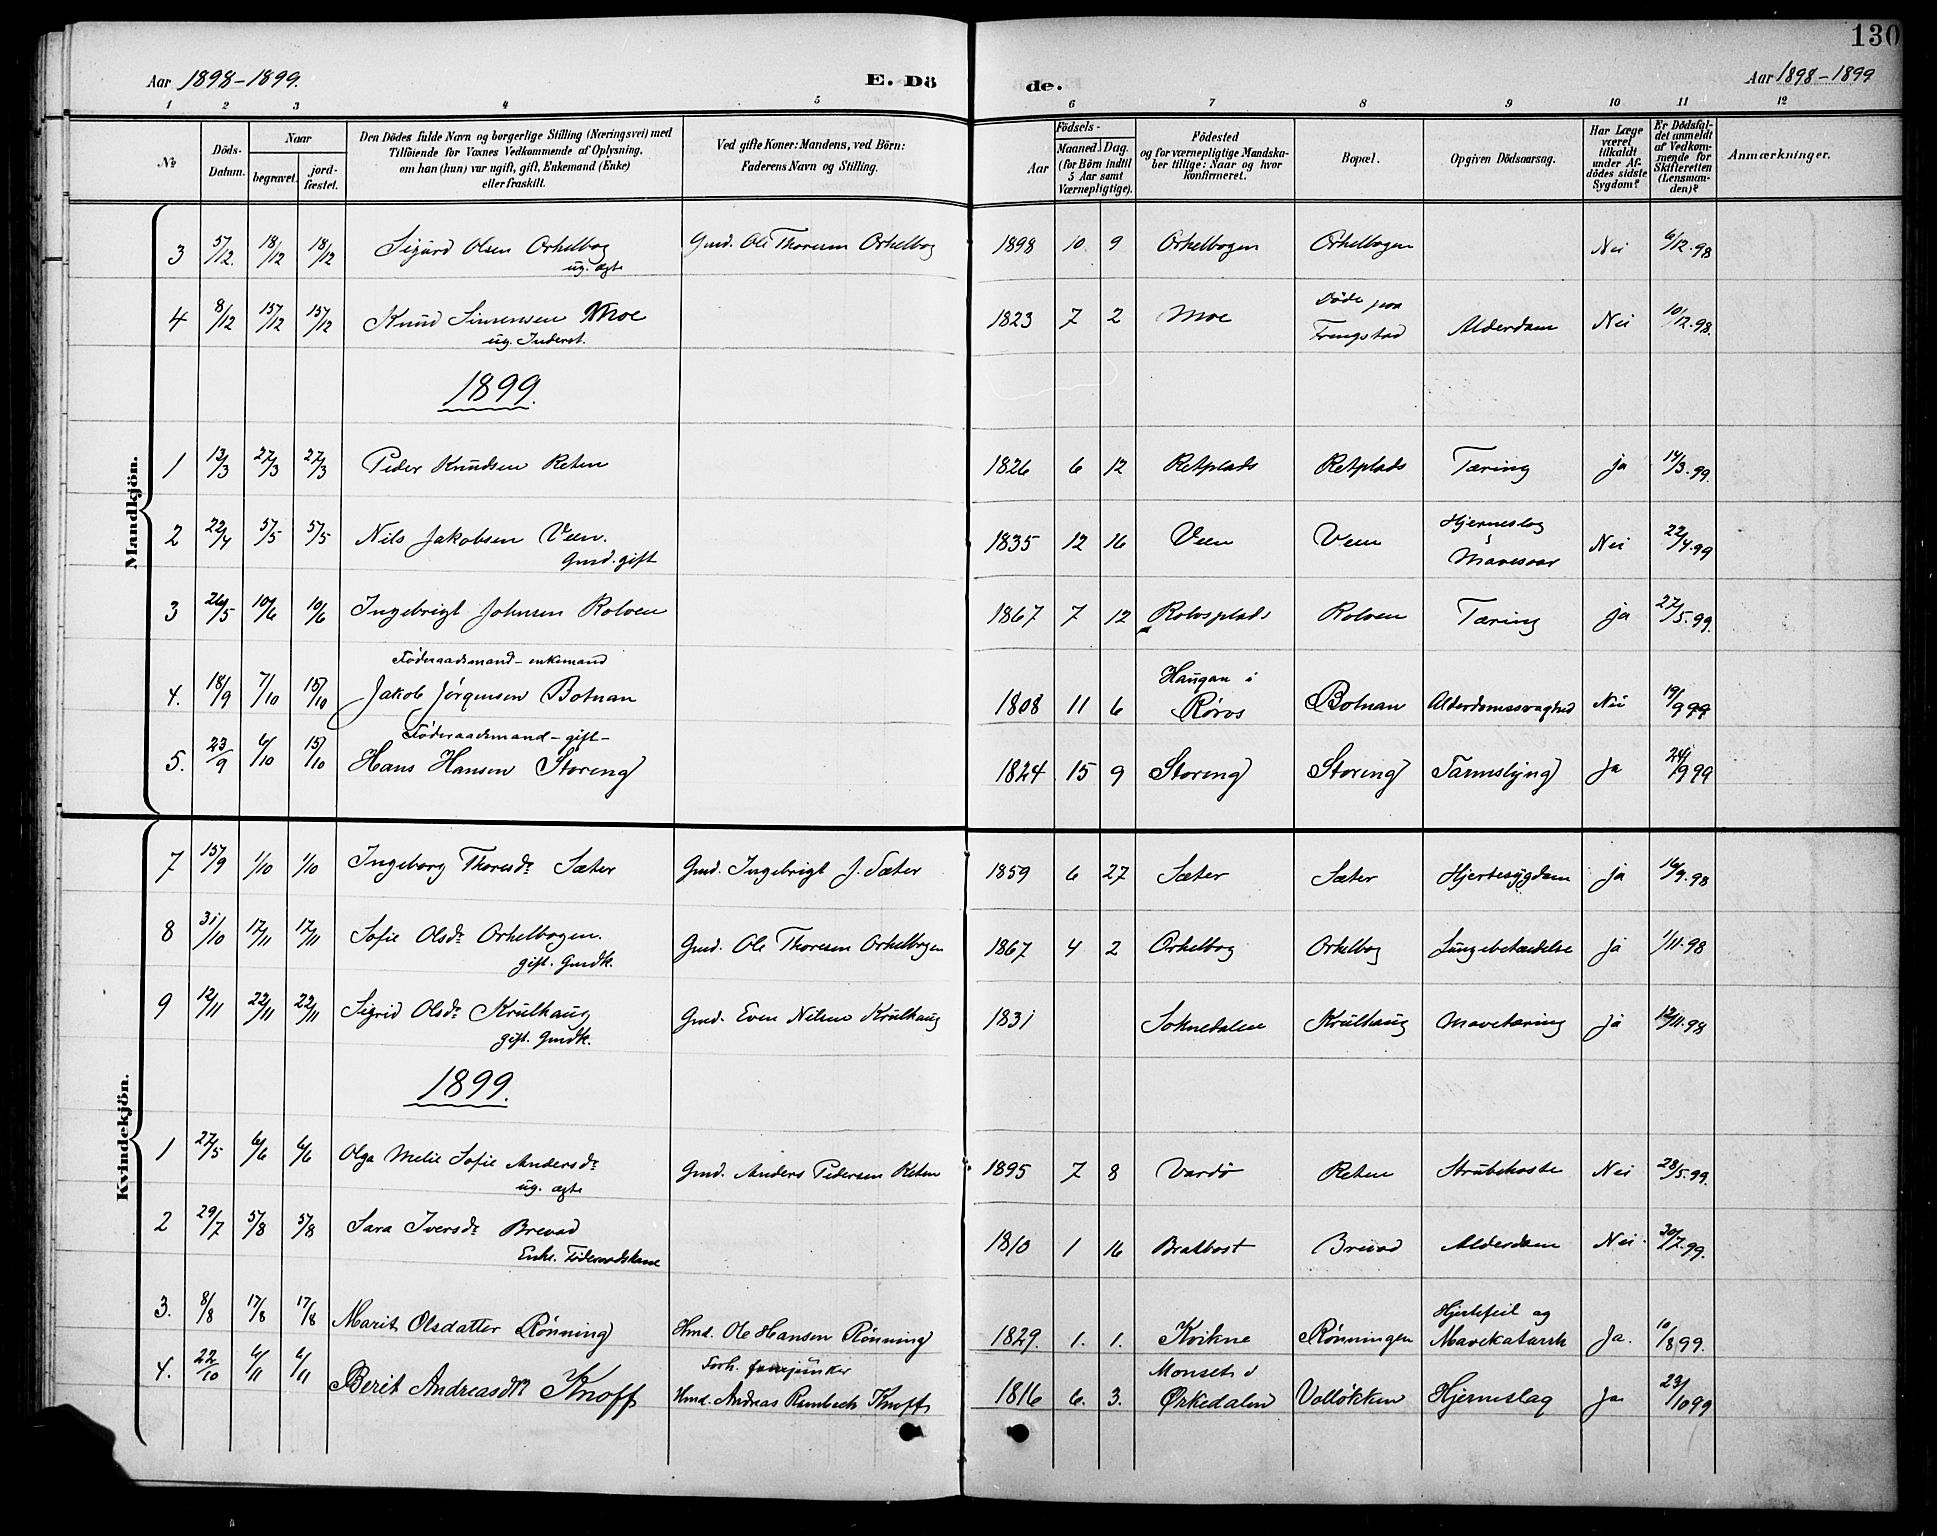 130
Aar 1898-1899.
E. Döde.
Aar 1898-1899
1 2 3 4 5 6 7 8 9 10 11 12
No.
Döds-Datum.
Naar
begravet.
jord-fæstet.
Den Dödes fulde Navn og borgerlige Stilling (Næringsvei) med
Tilföiende for Voxnes Vedkommende af Oplysning,
om han (hun) var ugift, gift, Enkemand (Enke)
eller fraskilt.
Ved gifte Koner: Mandens, ved Börn:
Faderens Navn og Stilling.
Födsels-
Aar
Maaned. Dag.
(for Börn indtil
5 Aar samt
Værnepligtige).
Födested
og for værnepligtige Mandska-
ber tillige: Naar og hvor
konfirmeret.
Bopæl.
Opgiven Dödsaarsag.
Har Læge
været
tilkaldt
under Af-
dödes sidste
Sygdom?
Er Dödsfal-
det anmeldt
af Vedkom-
mende for
Skifteretten
(Lensman-
den)?
Anmærkninger.
Mandkjön.
3 5/12. 18/12 18/12 Sigurd Olsen Orkelbog Gmd. Ole Thoresen Orkelbog 1898 10 9 Orkelbogen Orkelbogen Nei 6/12.98
ug. ægte
4 8/12 15/12 15/12 Knud Simensen Moe 1823 7 2 Moe Döde paa Frengstad Alderdom Nei 10/12.98.
ug. Inderst.
1899.
1 13/3 27/3 27/3 Peder Knudsen Reten 1826 6 12 Retplads Retplads Tæring ja 14/3.99.
2 22/4 5/5 5/5 Nils Jakobsen Veen. 1835 12 16 Veen Veen Hjerneslag Mavesaar Nei 22/4.99
Gmd. gift
3 26/5 10/6 10/6 Ingebrigt Johnsen Rolven 1867 7 12 Rolvsplads Rolven Tæring ja 27/5.99.
Föderaadsmand-enkemand
4. 18/9 7/10 15/10 Jakob Jørgensen Botnan 1808 11 6 Haugan i Røros Botnan Alderdomssvaghed Nei 19/9 99
Föderaadsmand-gift-
5. 23/9 6/10 15/10 Hans Hansen Storeng 1824 15 9 Storeng Storeng Tarmslyng Ja 24/9 99
Kvindekjön.
7 15/9 1/10 1/10 Ingeborg Thoresdr. Sæter Gmd. Ingebrigt J. Sæter 1859 6 27 Sæter Sæter Hjertesygdom ja 16/9.98
8 31/10 17/11 17/11 Sofie Olsdr. Orkelbogen. Gmd. Ole Thoresen Orkelbogen 1867 4 2 Orkelbog Orkelbog Lungebetændelse ja 1/11.98
gift. Gmdk.
9 12/11 22/11 22/11 Sigrid Olsdr. Krulhaug Gmd. Even Nilsen Krulhaug 1831 Soknedalen Krulhaug Mavetæring ja 12/11.98
gift. Gmdk.
1899.
1 27/5 6/6 6/6 Olga Melie Sofie Andersdr. Gmd. Anders Pedersen Reten 1895 7 8 Vardö Reten Strubehoste Nei 28/5.99.
ug. ægte
2 29/7 5/8 5/8 Sara Iversdr. Brevad 1810 1 16 Bratbost Brevad Alderdom Nei. 30/7.99.
Enke. Föderaadskone
3. 8/8 17/8 17/8 Marit Olsdatter Rönning Hmd. Ole Hansen Rönning 1829. 1. 1. Kvikne Rönningen Hjertefeil og Mavekatarrh Ja. 10/8 99.
4. 22/10 6/11 6/11 Berit Andreasdtr Knoff Forh. Hmd. Andreas Rambech Knoff 1816 6. 3. Monset i Ørkedalen Volløkken Hjerneslag Ja 23/10 99